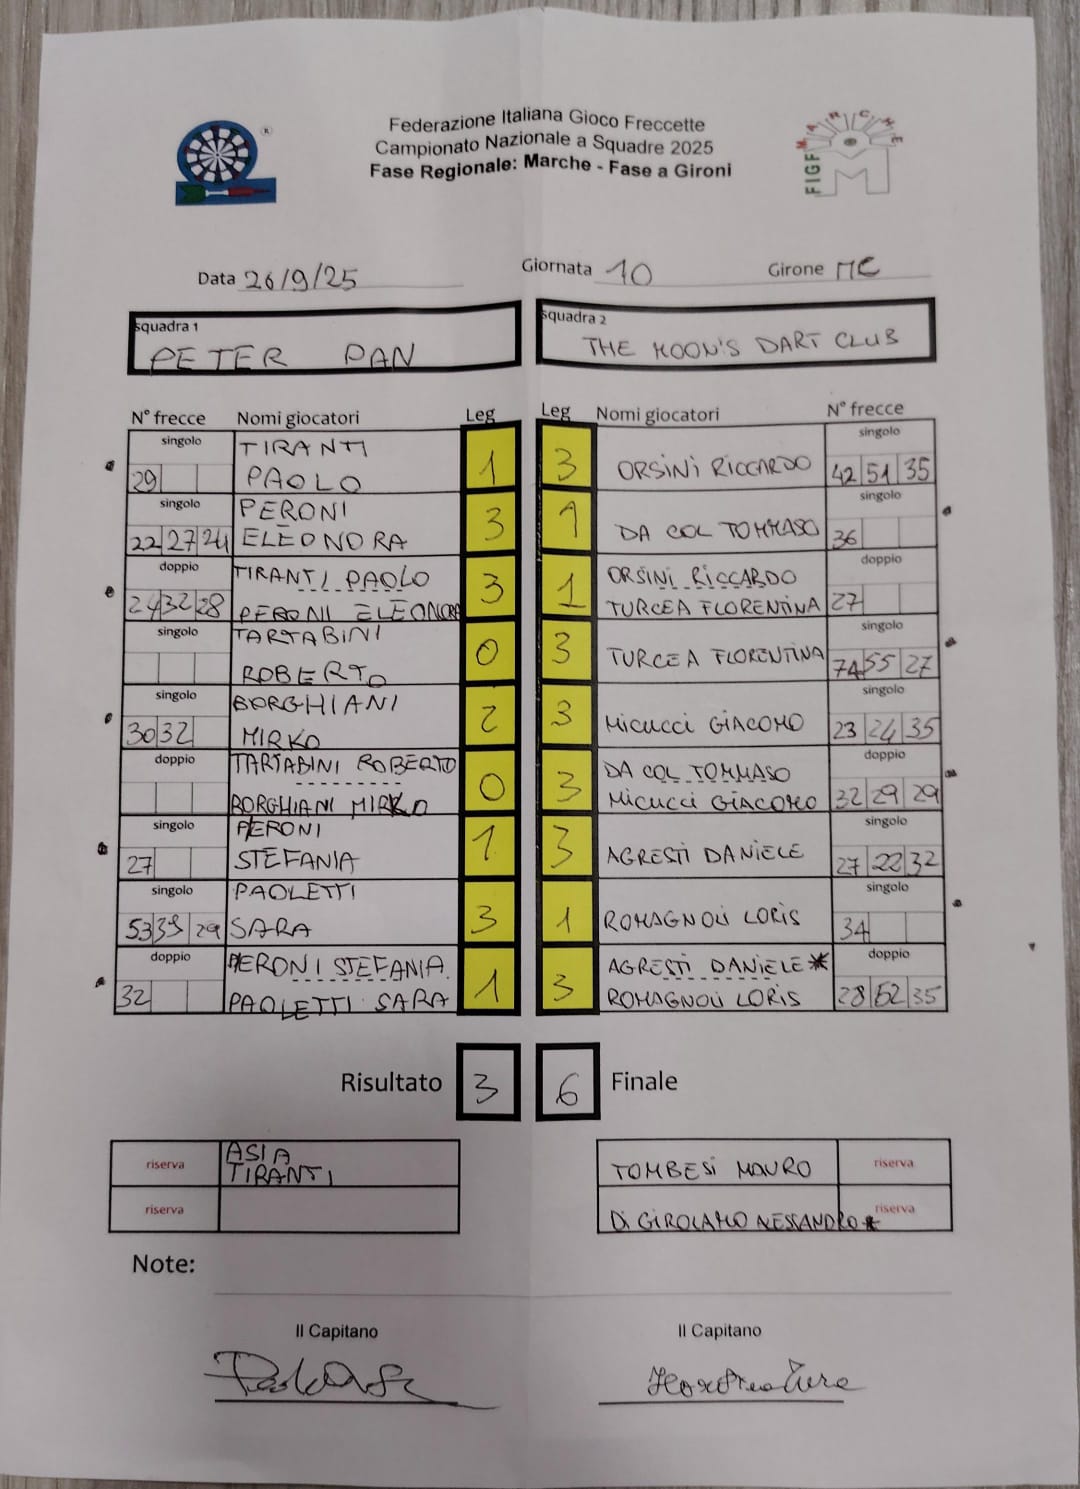 Federazione Italiana Gioco Freccette
Campionato Nazionale a Squadre 2025
Fase Regionale: Marche - Fase a Gironi
®
MARCHE
FIGF
M
Data 26/9/25 Giornata 10 Girone MC
squadra 1 squadra 2
PETER PAN THE MOON'S DART CLUB
N° frecce Nomi giocatori Leg Leg Nomi giocatori N° frecce
singolo TIRANTI singolo
29 PAOLO 1 3 ORSINI RICCARDO 42 51 35
singolo PERONI singolo
22 27 24 ELEONORA 3 1 DA COL TOMMASO 36
doppio TIRANTI PAOLO 3 1 ORSINI RICCARDO doppio
24 32 28 PERONI ELEONORA TURCEA FLORENTINA 27
singolo TARTABINI singolo
ROBERTO 0 3 TURCEA FLORENTINA 74 55 27
singolo BORGHIANI singolo
30 32 MIRKO 2 3 MICUCCI GIACOMO 23 24 35
doppio TARTABINI ROBERTO 0 3 DA COL TOMMASO doppio
BORGHIANI MIRKO MICUCCI GIACOMO 32 29 29
singolo PERONI singolo
27 STEFANIA 1 3 AGRESTI DANIELE 27 22 32
singolo PAOLETTI singolo
53 39 29 SARA 3 1 ROMAGNOLI LORIS 34
doppio PERONI STEFANIA 1 3 AGRESTI DANIELE* doppio
32 PAOLETTI SARA ROMAGNOLI LORIS 28 52 35
Risultato 3 6 Finale
riserva ASIA TOMBESI MAURO riserva
TIRANTI
riserva DI GIROLAMO ALESSANDRO* riserva
Note:
Il Capitano Il Capitano